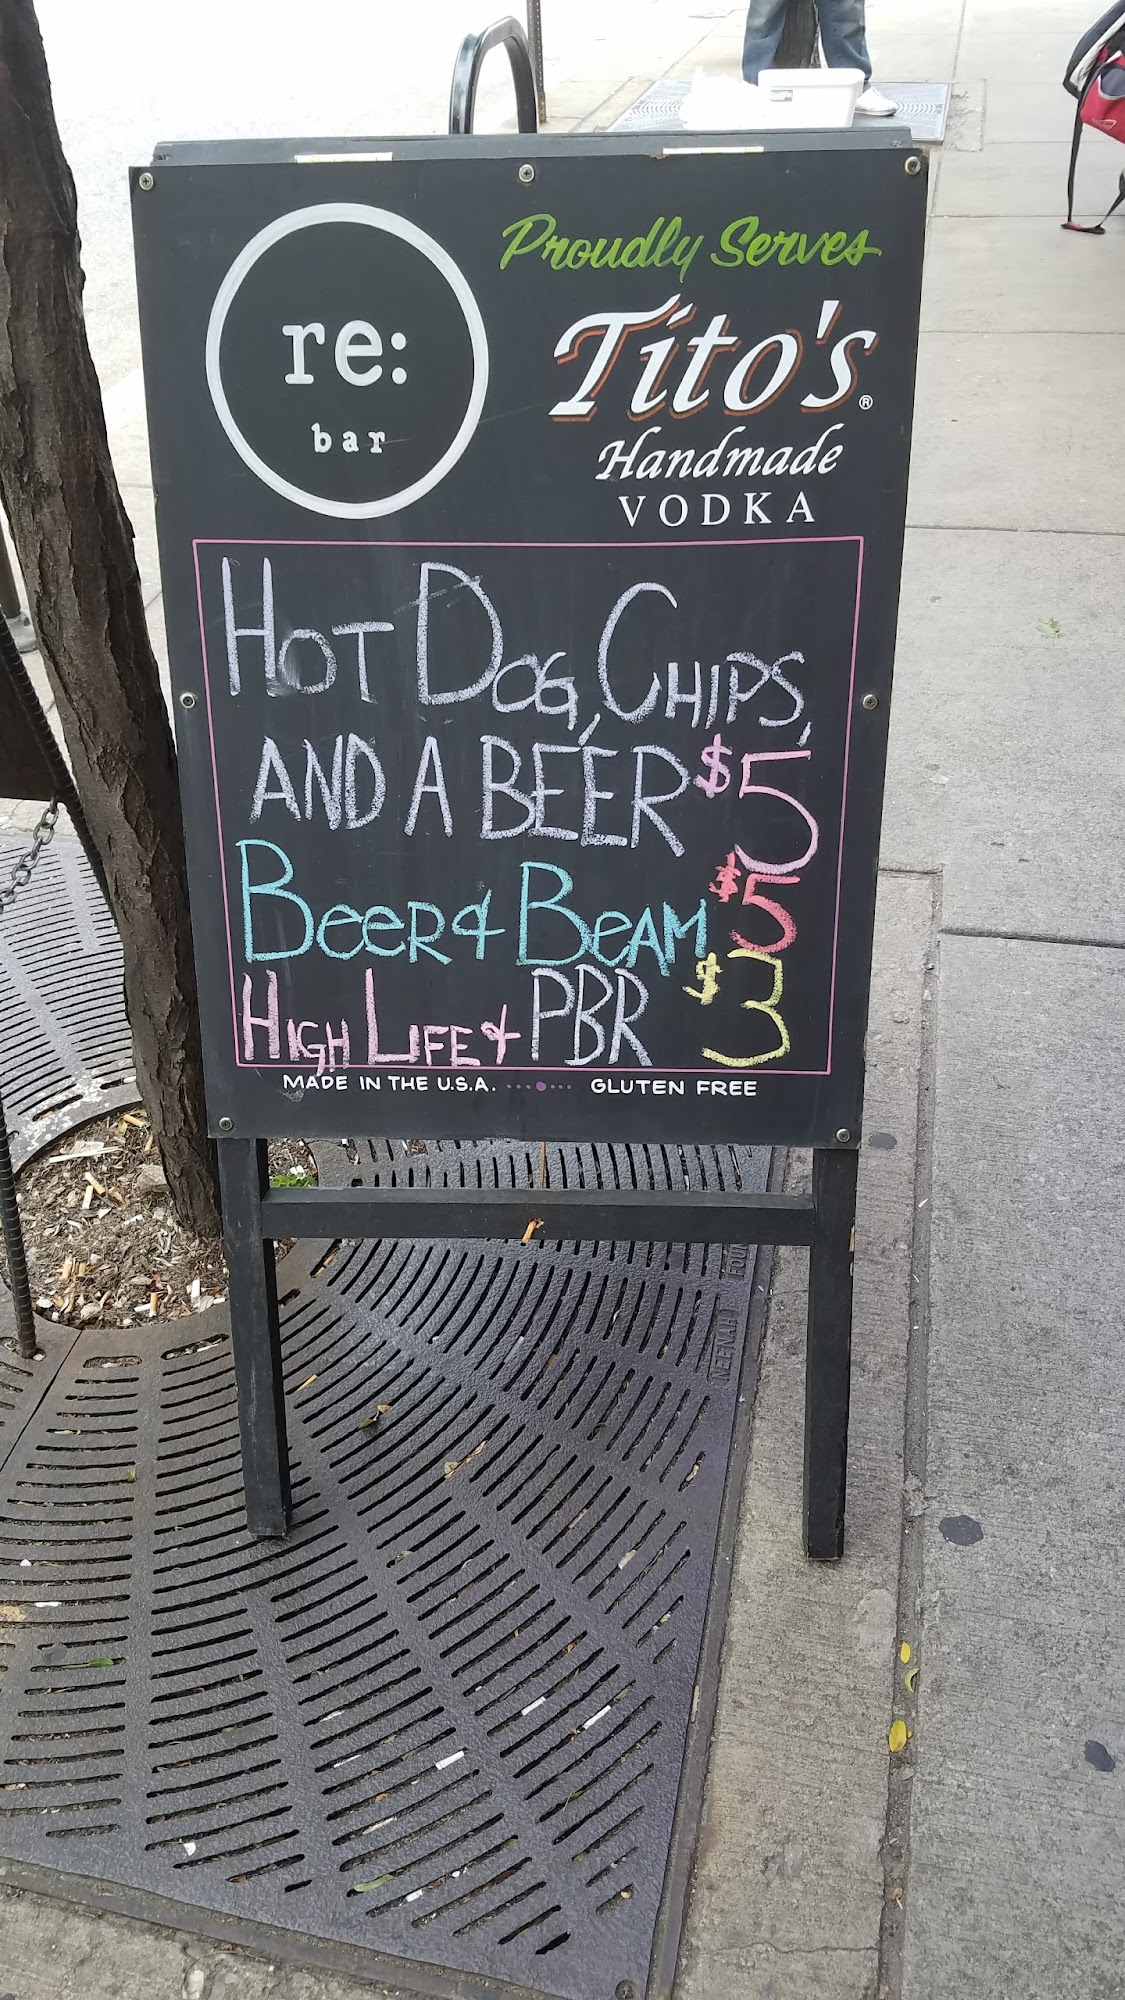 re:
bar
Proudly Serves
Tito's®
Handmade
VODKA
HOT DOG, CHIPS,
AND A BEER $5
BeeR & BeAM $5
HIGH LIFE & PBR $3
MADE IN THE U.S.A. GLUTEN FREE
NEENAH FOU